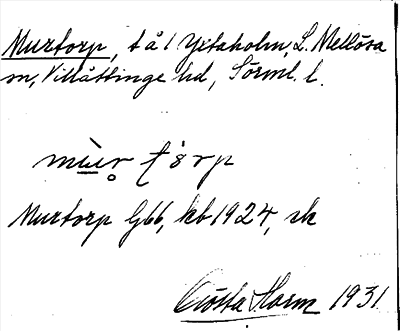 Murtorp, t å 1 Yxtaholm, L. Mellösa
sn, Villåttinge hd, Sörml. l.
Murtorp G66, kb 1924, sk
Gösta Holm 1931